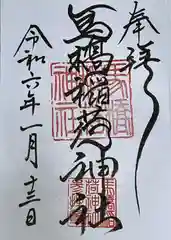 奉拝
馬橋稲荷神社
令和六年一月十三日